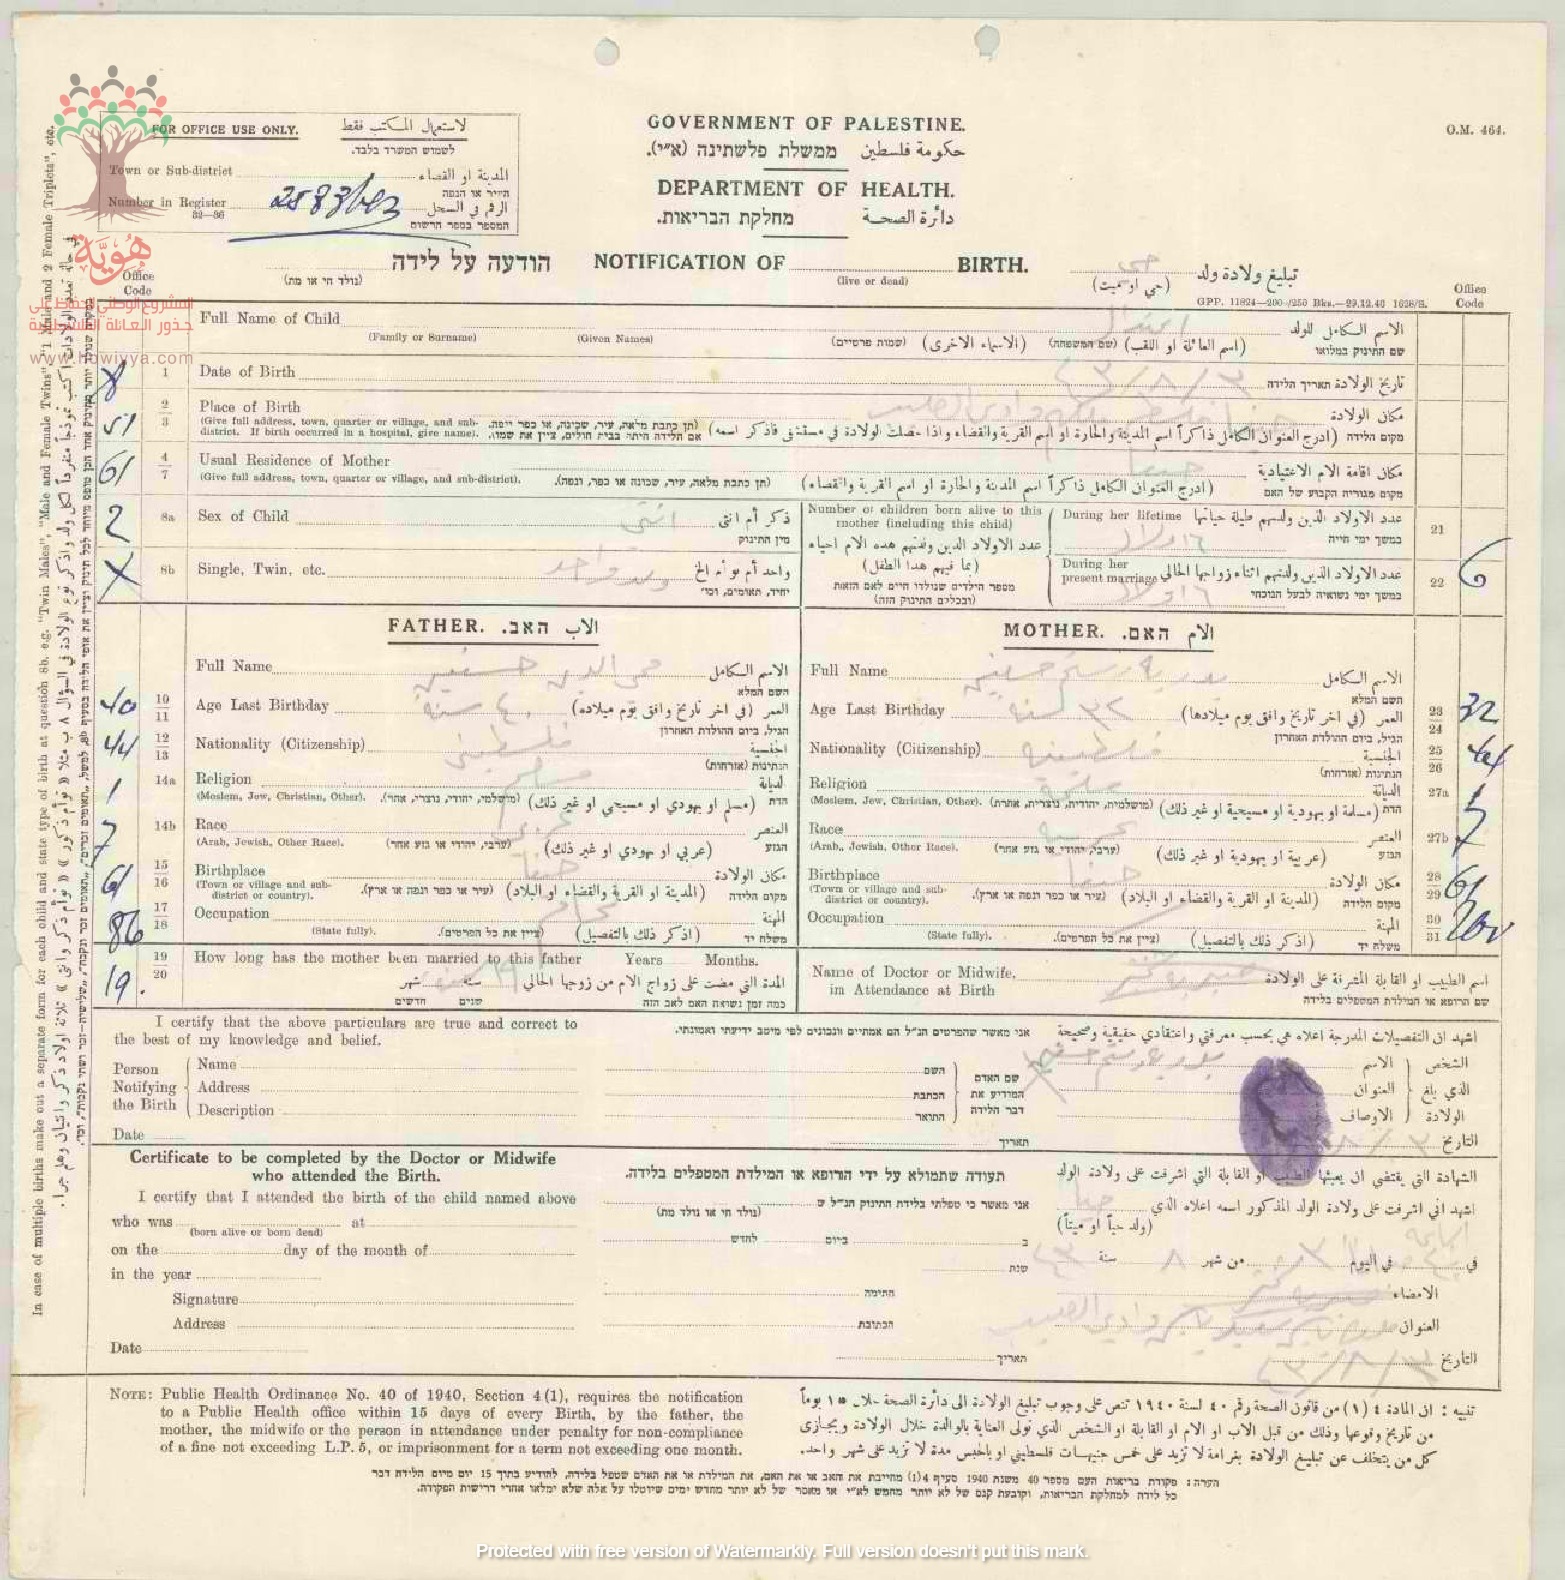 FOR OFFICE USE ONLY.
لاستعمال المكتب فقط
לשמוש המשרד בלבד.
Town or Sub-district
المدينة او القضاء
העיר או הנפה
Number in Register
32—36
الرقم في السجل
המספר בספר הרשום
GOVERNMENT OF PALESTINE.
حكومة فلسطين
ממשלת פלשתינה (א״י).
DEPARTMENT OF HEALTH.
دائرة الصحة
מחלקת הבריאות.
O.M. 464.
هُويّة
المشروع الوطني للحفاظ على
جذور العائلة الفلسطينية
www.howiyya.com
הודעה על לידה
(נולד חי או מת)
NOTIFICATION OF
BIRTH.
(live or dead)
تبليغ ولادة ولد
حي
(حي او ميت)
GPP. 11824—200/250 Bks.—29.12.40 1626/S.
Office Code
Office Code
Full Name of Child
(Family or Surname)
(Given Names)
(שמות פרטיים)
(الاسماء الاخرى)
(שם המשפחה)
(اسم العائلة او اللقب)
الاسم الكامل للولد
שם התינוק במלואו
8
1
Date of Birth
٤٣/٨/٣
تاريخ الولادة תאריך הלידה
51
2
3
Place of Birth
(Give full address, town, quarter or village, and sub-district. If birth occurred in a hospital, give name).
(תן כתבת מלאה, עיר, שכונה, או כפר ונפה.
אם הלידה היתה בבית חולים, ציין את שמו).
وادي الصليب
مكان الولادة
מקום הלידה (ادرج العنوان الكامل ذاكراً اسم المدينة والحارة او اسم القرية والقضاء واذا حصلت الولادة في مستشفى فاذكر اسمه)
61
4
7
Usual Residence of Mother
(Give full address, town, quarter or village, and sub-district).
(תן כתבת מלאה, עיר, שכונה או כפר, ונפה).
حيفا
مكان اقامة الام الاعتيادية
(ادرج العنوان الكامل ذاكراً اسم المدينة والحارة او اسم القرية والقضاء)
מקום מגוריה הקבוע של האם
2
8a
Sex of Child
انثى
ذكر أم انثى
מין התינוק
8b
Single, Twin, etc.
ولد واحد
واحد أم توأم الخ
יחיד, תאומים, וכו׳
Number of children born alive to this mother (including this child)
عدد الاولاد الذين ولدتهم هذه الام احياء
(بما فيهم هذا الطفل)
מספר הילדים שנולדו חיים לאם הזאת
(ובכללם התינוק הזה)
During her lifetime
عدد الاولاد الذين ولدتهم طيلة حياتها
במשך ימי חייה
٦ اولاد
21
During her present marriage
عدد الاولاد الذين ولدتهم اثناء زواجها الحالي
במשך ימי נשואיה לבעל הנוכחי
٦ اولاد
22
6
FATHER. האב. الاب
MOTHER. האם. الام
Full Name
محي الدين حسين
الاسم الكامل
השם המלא
Full Name
بدرية رستم حسين
الاسم الكامل
השם המלא
40
10
11
Age Last Birthday
٤٠ سنة
العمر (في اخر تاريخ وافق يوم ميلاده)
הגיל, ביום ההולדת האחרון
Age Last Birthday
٣٢ سنة
العمر (في اخر تاريخ وافق يوم ميلادها)
הגיל, ביום ההולדת האחרון
23
24
32
44
12
13
Nationality (Citizenship)
فلسطيني
الجنسية
הנתינות (אזרחות)
Nationality (Citizenship)
فلسطينية
الجنسية
הנתינות (אזרחות)
25
26
44
1
14a
Religion
(Moslem, Jew, Christian, Other).
(מושלמי, יהודי, נוצרי, אחר).
مسلم
الديانة
(مسلم او يهودي او مسيحي او غير ذلك) הדת
Religion
(Moslem, Jew, Christian, Other).
(מושלמית, יהודית, נוצרית, אחרת)
مسلمة
الديانة
(مسلمة او يهودية او مسيحية او غير ذلك) הדת
27a
7
14b
Race
(Arab, Jewish, Other Race).
(ערבי, יהודי או גזע אחר)
عربي
العنصر
(عربي او يهودي او غير ذلك) הגזע
Race
(Arab, Jewish, Other Race).
(ערבי, יהודי או גזע אחר)
عربية
العنصر
(عربية او يهودية او غير ذلك) הגזע
27b
61
15
16
Birthplace
(Town or village and sub-district or country).
(עיר או כפר ונפה או ארץ).
حيفا
مكان الولادة
(المدينة او القرية والقضاء او البلاد) מקום הלידה
Birthplace
(Town or village and sub-district or country).
(עיר או כפר ונפה או ארץ).
حيفا
مكان الولادة
(المدينة او القرية والقضاء او البلاد) מקום הלידה
28
29
61
86
17
18
Occupation
(State fully).
(ציין את כל הפרטים).
المهنة
(اذكر ذلك بالتفصيل) משלח יד
Occupation
(State fully).
(ציין את כל הפרטים).
المهنة
(اذكر ذلك بالتفصيل) משלח יד
30
31
19.
19
20
How long has the mother been married to this father Years Months.
المدة التي مضت على زواج الام من زوجها الحالي
سنة شهر
כמה זמן נשואה האם לאב הזה
שנים חדשים
Name of Doctor or Midwife,
in Attendance at Birth
اسم الطبيب او القابلة المشرفة على الولادة
שם הרופא או המילדת המטפלים בלידה
I certify that the above particulars are true and correct to
the best of my knowledge and belief.
אני מאשר שהפרטים הנ״ל הם אמתיים ונכונים לפי מיטב ידיעתי ואמונתי.
اشهد ان التفصيلات المدرجة اعلاه هي بحسب معرفتي واعتقادي حقيقية وصحيحة
Person Notifying the Birth
Name
Address
Description
השם
הכתבת
התואר
שם האדם
המודיע את
דבר הלידה
بدرية رستم حسين
الشخص الذي بلغ الولادة
الاسم
العنوان
الاوصاف
Date
תאריך
التاريخ
Certificate to be completed by the Doctor or Midwife
who attended the Birth.
תעודה שתמולא על ידי הרופא או המילדת המטפלים בלידה.
الشهادة التي يقتضي ان يعبئها الطبيب او القابلة التي اشرفت على ولادة الولد
I certify that I attended the birth of the child named above
who was at
(born alive or born dead)
on the day of the month of
in the year
Signature
Address
Date
אני מאשר כי טפלתי בלידת התינוק הנ״ל ש
(נולד חי או נולד מת)
ב ביום לחדש
שנת
החתימה
הכתובת
תאריך
اشهد اني اشرفت على ولادة الولد المذكور اسمه اعلاه الذي
(ولد حياً او ميتاً)
في في اليوم من شهر ٨ سنة ٤٣
الامضاء
العنوان
وادي الصليب
التاريخ
٤٣/٨/٣
NOTE: Public Health Ordinance No. 40 of 1940, Section 4(1), requires the notification
to a Public Health office within 15 days of every Birth, by the father, the
mother, the midwife or the person in attendance under penalty for non-compliance
of a fine not exceeding L.P. 5, or imprisonment for a term not exceeding one month.
تنبيه : ان المادة ٤ (١) من قانون الصحة رقم ٤٠ لسنة ١٩٤٠ تنص على وجوب تبليغ الولادة الى دائرة الصحة خلال ١٥ يوماً
من تاريخ وقوعها وذلك من قبل الاب او الام او القابلة او الشخص الذي تولى العناية بالوالدة خلال الولادة ويجازى
كل من يتخلف عن تبليغ الولادة بغرامة لا تزيد على خمس جنيهات فلسطيني او بالحبس مدة لا تزيد على شهر واحد.
הערה : פקודת בריאות העם מספר 40 משנת 1940 סעיף 4(1) מחייבת את האב או את האם, את המילדת או את האדם שטפל בלידה, להודיע בתוך 15 יום מיום הלידה דבר
כל לידה למחלקת הבריאות, וקובעת קנס של לא יותר מחמש לא״י או מאסר של לא יותר מחדש ימים שיוטלו על אלה שלא ימלאו אחרי דרישות הפקודה.
In case of multiple births make out a separate form for each child and state type of birth at question 8b. e.g. "Twin Males", "Male and Female Twins" "1 Male and 2 Female Triplets", etc.
Protected with free version of Watermarkly. Full version doesn't put this mark.